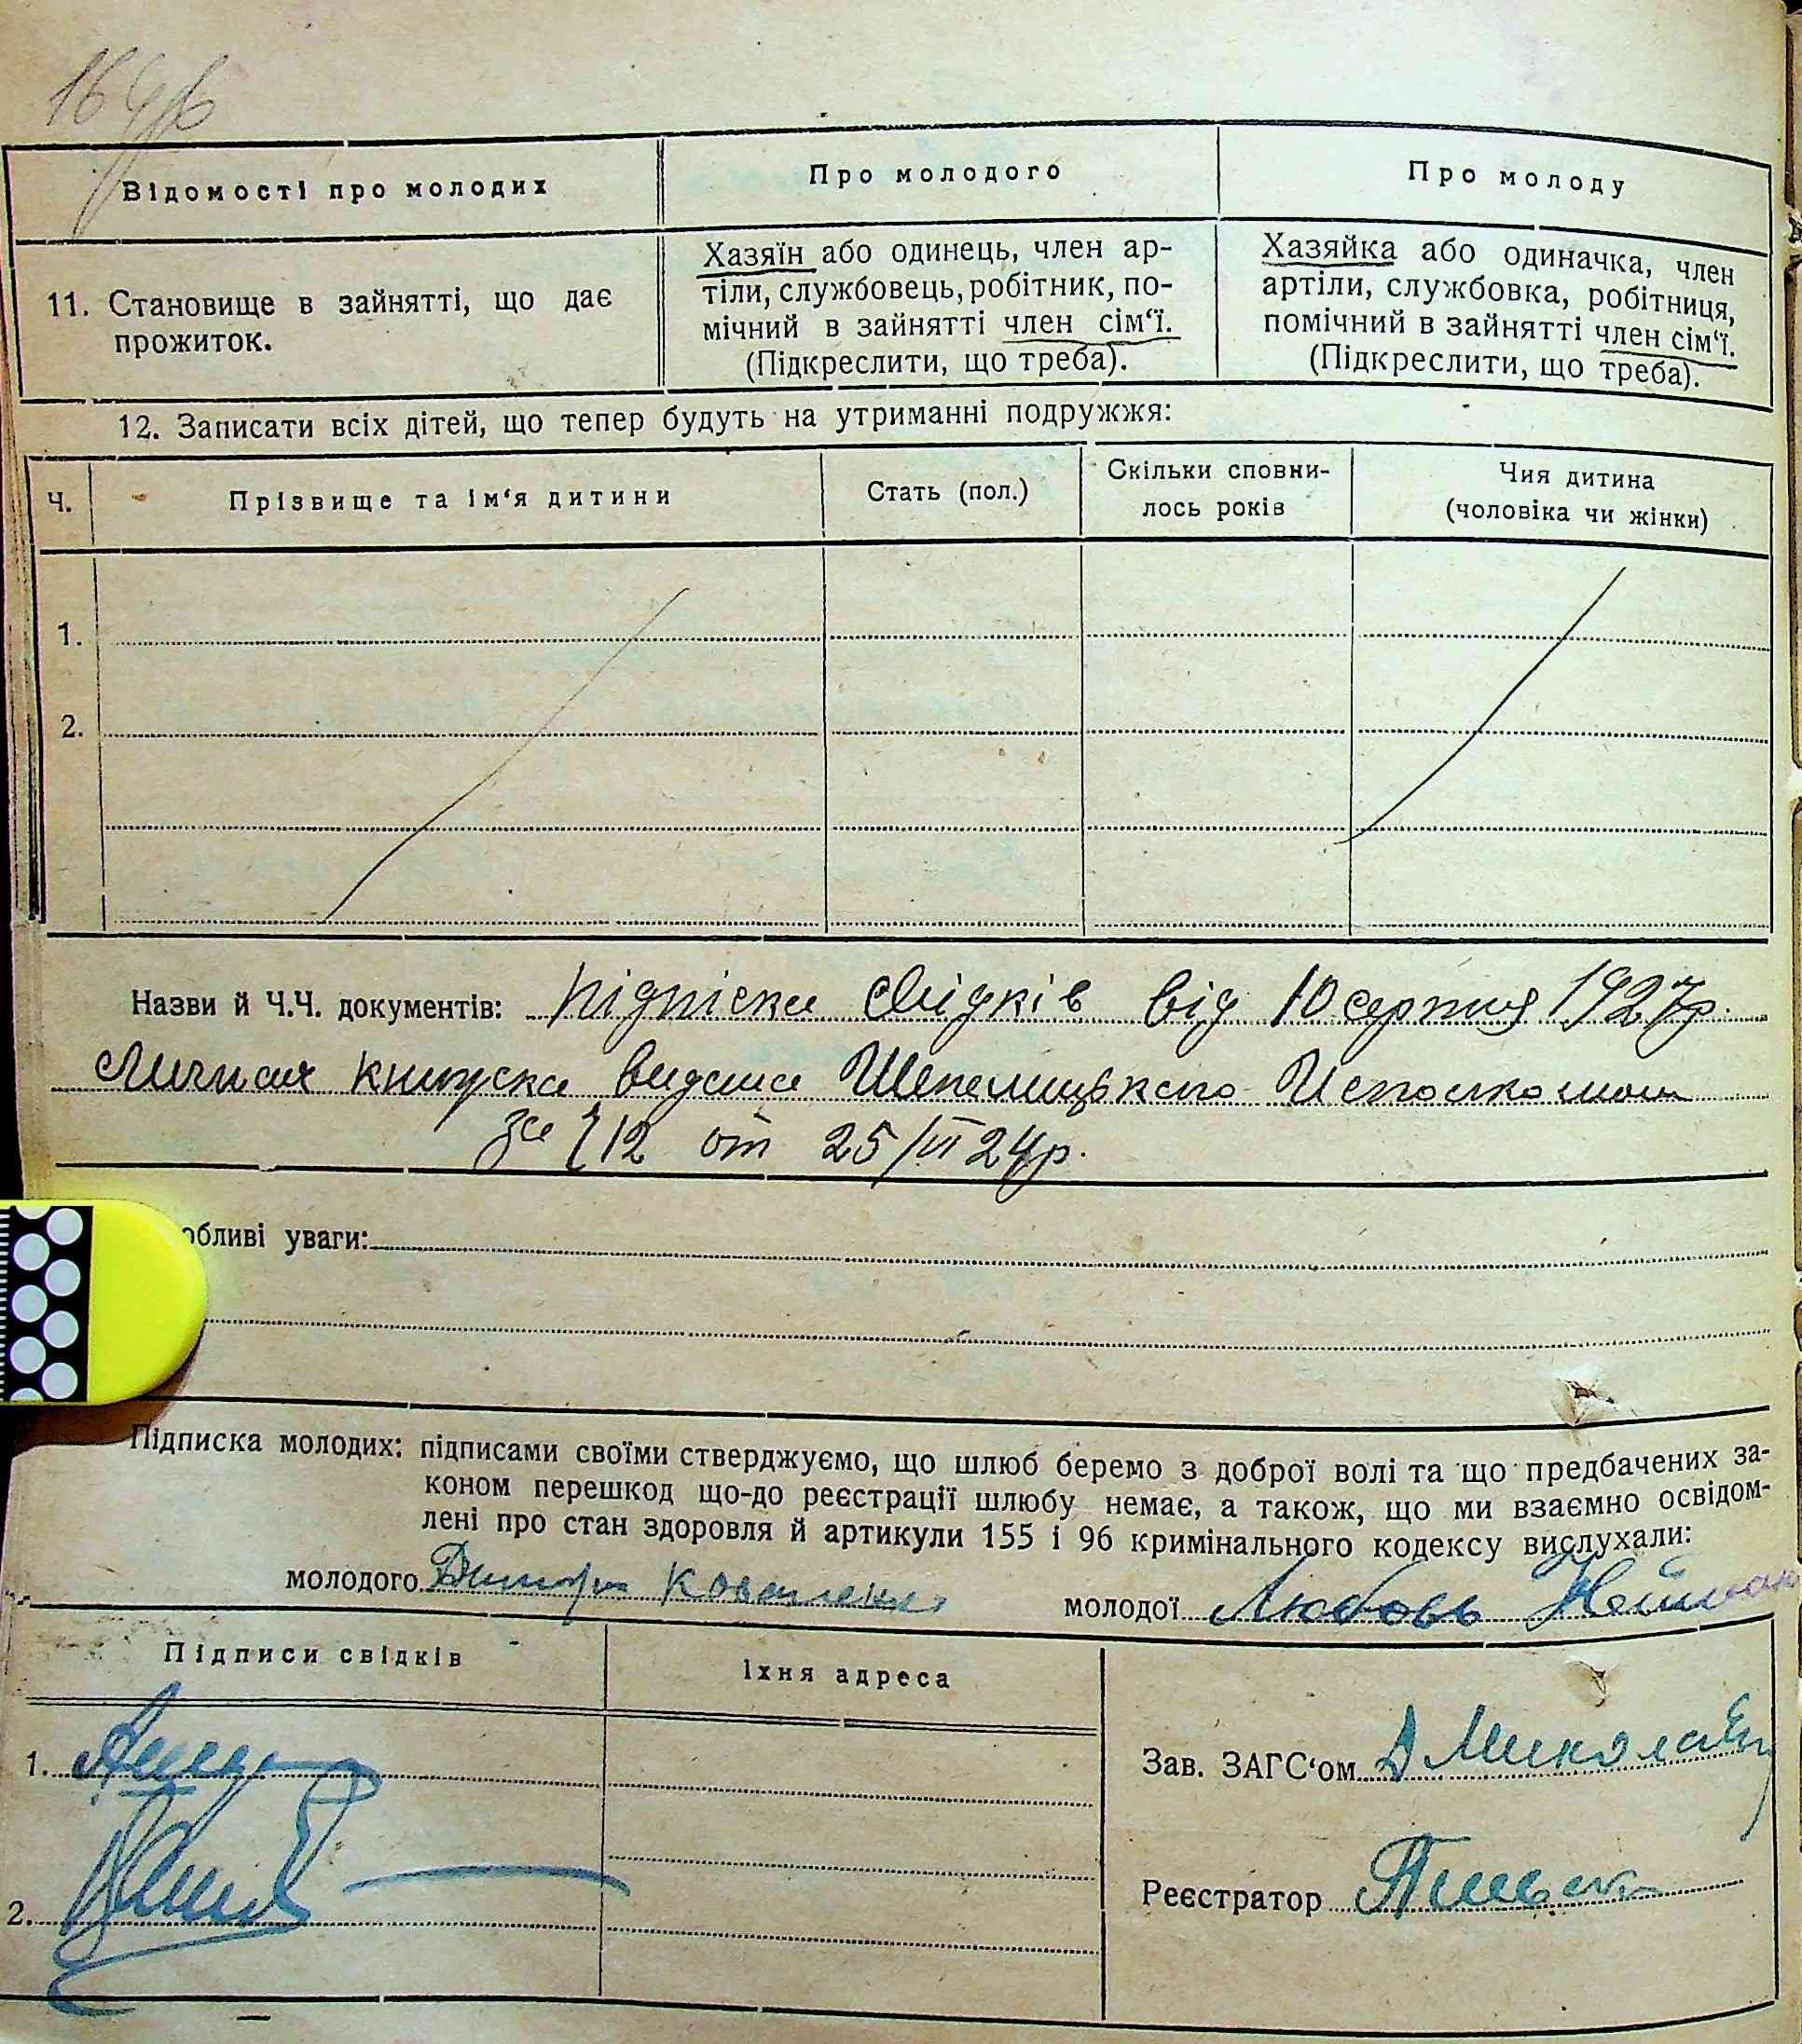 Відомості про молодих
Про молодого
Про молоду
11. Становище в зайнятті, що дає
прожиток.
Хазяїн або одинець, член ар-
тіли, службовець, робітник, по-
мічний в зайнятті член сім‘ї.
(Підкреслити, що треба).
Хазяйка або одиначка, член
артіли, службовка, робітниця,
помічний в зайнятті член сім‘ї.
(Підкреслити, що треба).
12. Записати всіх дітей, що тепер будуть на утриманні подружжя:
Ч.
Прізвище та ім‘я дитини
Стать (пол.)
Скільки сповни-
лось років
Чия дитина
(чоловіка чи жінки)
1.
2.
Назви й Ч.Ч. документів: підпіска свідків від 10 серпня 1927р.
Личная книжка видана Шепелицького Исполкомом
за 712 от 25/VI 24р.
обливі уваги:
Підписка молодих: підписами своїми стверджуємо, що шлюб беремо з доброї волі та що предбачених за-
коном перешкод що-до реєстрації шлюбу немає, а також, що ми взаємно освідом-
лені про стан здоровля й артикули 155 і 96 кримінального кодексу вислухали:
молодого Дмитри Коваленко
молодої Любовь Нейман
Підписи свідків
Їхня адреса
1.
2.
Зав. ЗАГС‘ом
Реєстратор